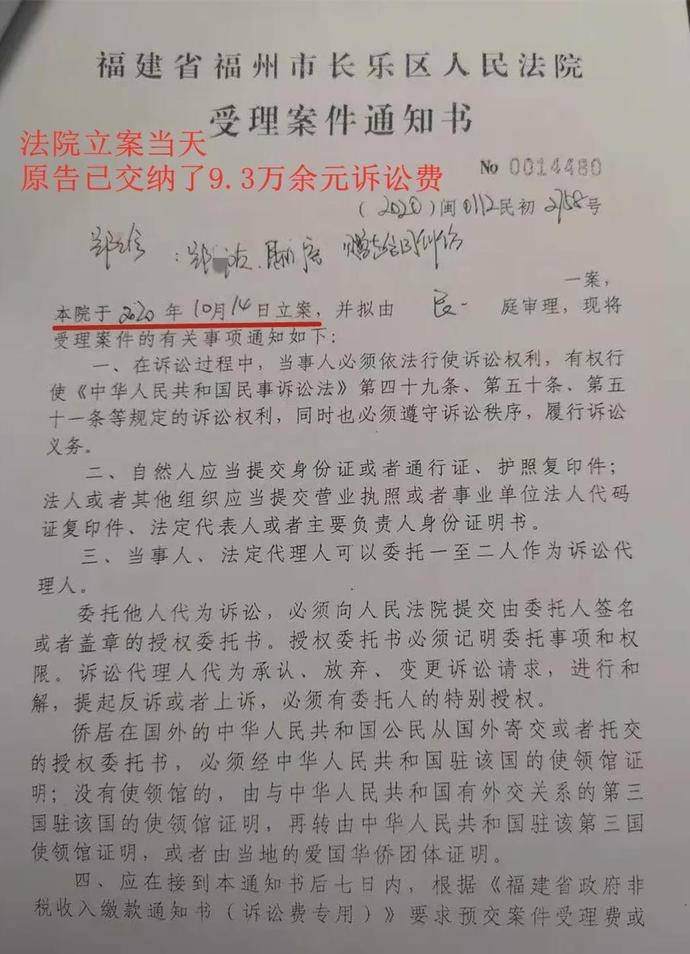 福建省福州市长乐区人民法院
受理案件通知书
法院立案当天
原告已交纳了9.3万余元诉讼费
No 0014480
（2020）闽0112民初2758号
一案，
本院于2020年10月14日立案，并拟由 民一 庭审理，现将
受理案件的有关事项通知如下：
一、在诉讼过程中，当事人必须依法行使诉讼权利，有权行
使《中华人民共和国民事诉讼法》第四十九条、第五十条、第五
十一条等规定的诉讼权利，同时也必须遵守诉讼秩序，履行诉讼
义务。
二、自然人应当提交身份证或者通行证、护照复印件；
法人或者其他组织应当提交营业执照或者事业单位法人代码
证复印件、法定代表人或者主要负责人身份证明书。
三、当事人、法定代理人可以委托一至二人作为诉讼代
理人。
委托他人代为诉讼，必须向人民法院提交由委托人签名
或者盖章的授权委托书。授权委托书必须记明委托事项和权
限。诉讼代理人代为承认、放弃、变更诉讼请求，进行和
解，提起反诉或者上诉，必须有委托人的特别授权。
侨居在国外的中华人民共和国公民从国外寄交或者托交
的授权委托书，必须经中华人民共和国驻该国的使领馆证
明；没有使领馆的，由与中华人民共和国有外交关系的第三
国驻该国的使领馆证明，再转由中华人民共和国驻该第三国
使领馆证明，或者由当地的爱国华侨团体证明。
四、应在接到本通知书后七日内，根据《福建省政府非
税收入缴款通知书（诉讼费专用）》要求预交案件受理费或